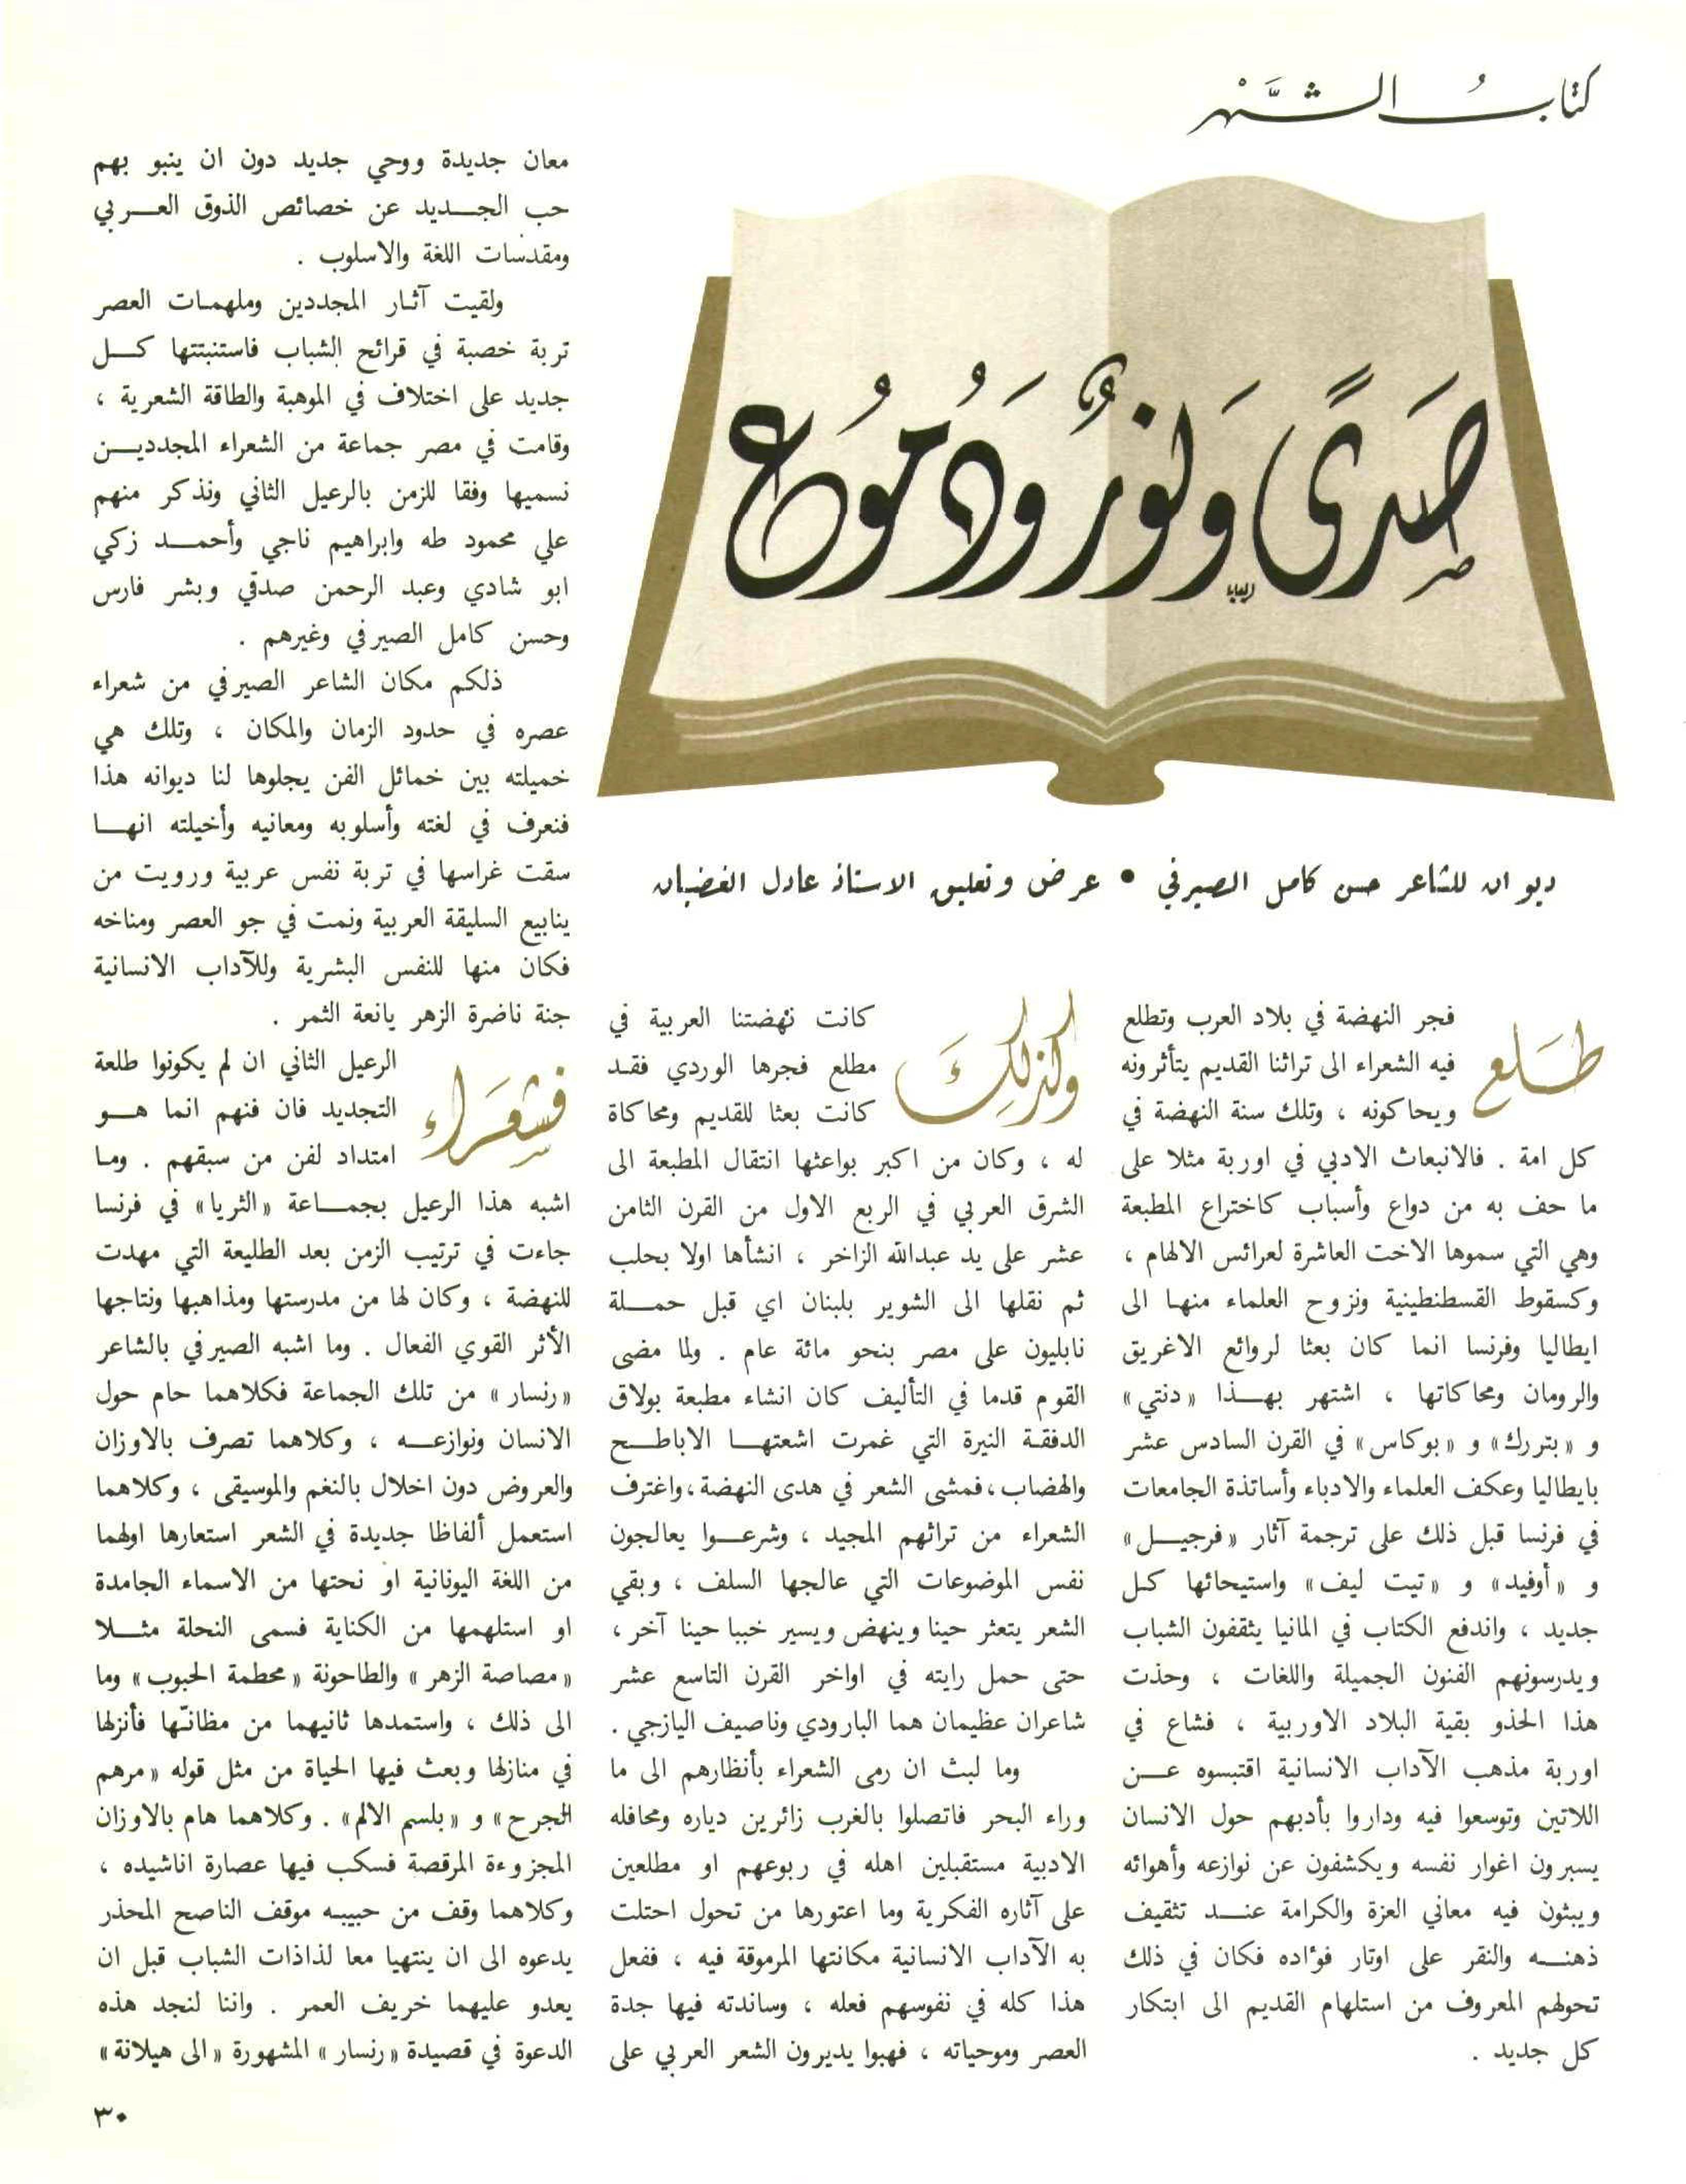 كتابُ الشَّهْر
صَدًى وَنورٌ وَدُموُع
ديوان للشاعر حسن كامل الصيرفي • عرض وتعليق الاستاذ عادل الغضبان
طَلَع فجر النهضة في بلاد العرب وتطلع
فيه الشعراء الى تراثنا القديم يتأثرونه
ويحاكونه ، وتلك سنة النهضة في
كل امة . فالانبعاث الادبي في اوربة مثلا على
ما حف به من دواع وأسباب كاختراع المطبعة
وهي التي سموها الاخت العاشرة لعرائس الالهام ،
وكسقوط القسطنطينية ونزوح العلماء منها الى
ايطاليا وفرنسا انما كان بعثا لروائع الاغريق
والرومان ومحاكاتها ، اشتهر بهـــذا «دنتي»
و «بتررك» و «بوكاس» في القرن السادس عشر
بايطاليا وعكف العلماء والادباء وأساتذة الجامعات
في فرنسا قبل ذلك على ترجمة آثار «فرجيـــل»
و «أوفيد» و «تيت ليف» واستيحائها كل
جديد ، واندفع الكتاب في المانيا يثقفون الشباب
ويدرسونهم الفنون الجميلة واللغات ، وحذت
هذا الحذو بقية البلاد الاوربية ، فشاع في
اوربة مذهب الآداب الانسانية اقتبسوه عـــن
اللاتين وتوسعوا فيه وداروا بأدبهم حول الانسان
يسبرون اغوار نفسه ويكشفون عن نوازعه وأهوائه
ويبثون فيه معاني العزة والكرامة عنـــد تثقيف
ذهنـــه والنقر على اوتار فؤاده فكان في ذلك
تحولهم المعروف من استلهام القديم الى ابتكار
كل جديد .
وكذلِكَ كانت نهضتنا العربية في
مطلع فجرها الوردي فقـد
كانت بعثا للقديم ومحاكاة
له ، وكان من اكبر بواعثها انتقال المطبعة الى
الشرق العربي في الربع الاول من القرن الثامن
عشر على يد عبدالله الزاخر ، انشأها اولا بحلب
ثم نقلها الى الشوير بلبنان اي قبل حمـــلة
نابليون على مصر بنحو مائة عام . ولما مضى
القوم قدما في التأليف كان انشاء مطبعة بولاق
الدفقة النيرة التي غمرت اشعتهـــا الاباطـــح
والهضاب ، فمشى الشعر في هدى النهضة ، واغترف
الشعراء من تراثهم المجيد ، وشرعـــوا يعالجون
نفس الموضوعات التي عالجها السلف ، وبقي
الشعر يتعثر حينا وينهض ويسير خببا حينا آخر ،
حتى حمل رايته في اواخر القرن التاسع عشر
شاعران عظيمان هما البارودي وناصيف اليازجي .
وما لبث ان رمى الشعراء بأنظارهم الى ما
وراء البحر فاتصلوا بالغرب زائرين دياره ومحافله
الادبية مستقبلين اهله في ربوعهم او مطلعين
على آثاره الفكرية وما اعتورها من تحول احتلت
به الآداب الانسانية مكانتها المرموقة فيه ، ففعل
هذا كله في نفوسهم فعله ، وساندته فيها جدة
العصر وموحياته ، فهبوا يديرون الشعر العربي على
معان جديدة ووحي جديد دون ان ينبو بهم
حب الجـــديد عن خصائص الذوق العـــربي
ومقدسات اللغة والاسلوب .
ولقيت آثـار المجددين وملهمـات العصر
تربة خصبة في قرائح الشباب فاستنبتتها كـــل
جديد على اختلاف في الموهبة والطاقة الشعرية ،
وقامت في مصر جماعة من الشعراء المجدديـــن
نسميها وفقا للزمن بالرعيل الثاني ونذكر منهم
علي محمود طه وابراهيم ناجي وأحمـــد زكي
ابو شادي وعبد الرحمن صدقي وبشر فارس
وحسن كامل الصيرفي وغيرهم .
ذلكم مكان الشاعر الصيرفي من شعراء
عصره في حدود الزمان والمكان ، وتلك هي
خميلته بين خمائل الفن يجلوها لنا ديوانه هذا
فنعرف في لغته وأسلوبه ومعانيه وأخيلته انهـــا
سقت غراسها في تربة نفس عربية ورويت من
ينابيع السليقة العربية ونمت في جو العصر ومناخه
فكان منها للنفس البشرية وللآداب الانسانية
جنة ناضرة الزهر يانعة الثمر .
فشعَراء الرعيل الثاني ان لم يكونوا طلعة
التجديد فان فنهم انما هـــو
امتداد لفن من سبقهم . وما
اشبه هذا الرعيل بجمـــاعة «الثريا» في فرنسا
جاءت في ترتيب الزمن بعد الطليعة التي مهدت
للنهضة ، وكان لها من مدرستها ومذاهبها ونتاجها
الأثر القوي الفعال . وما اشبه الصيرفي بالشاعر
«رنسار» من تلك الجماعة فكلاهما حام حول
الانسان ونوازعـــه ، وكلاهما تصرف بالاوزان
والعروض دون اخلال بالنغم والموسيقى ، وكلاهما
استعمل ألفاظا جديدة في الشعر استعارها اولهما
من اللغة اليونانية او نحتها من الاسماء الجامدة
او استلهمها من الكناية فسمى النحلة مثـــلا
«مصاصة الزهر» والطاحونة «محطمة الحبوب» وما
الى ذلك ، واستمدها ثانيهما من مظانّها فأنزلها
في منازلها وبعث فيها الحياة من مثل قوله «مرهم
الجرح» و «بلسم الالم» . وكلاهما هام بالاوزان
المجزوءة المرقصة فسكب فيها عصارة اناشيده ،
وكلاهما وقف من حبيبه موقف الناصح المحذر
يدعوه الى ان ينتهيا معا لذاذات الشباب قبل ان
يعدو عليهما خريف العمر . واننا لنجد هذه
الدعوة في قصيدة «رنسار» المشهورة «الى هيلانة»
٣٠